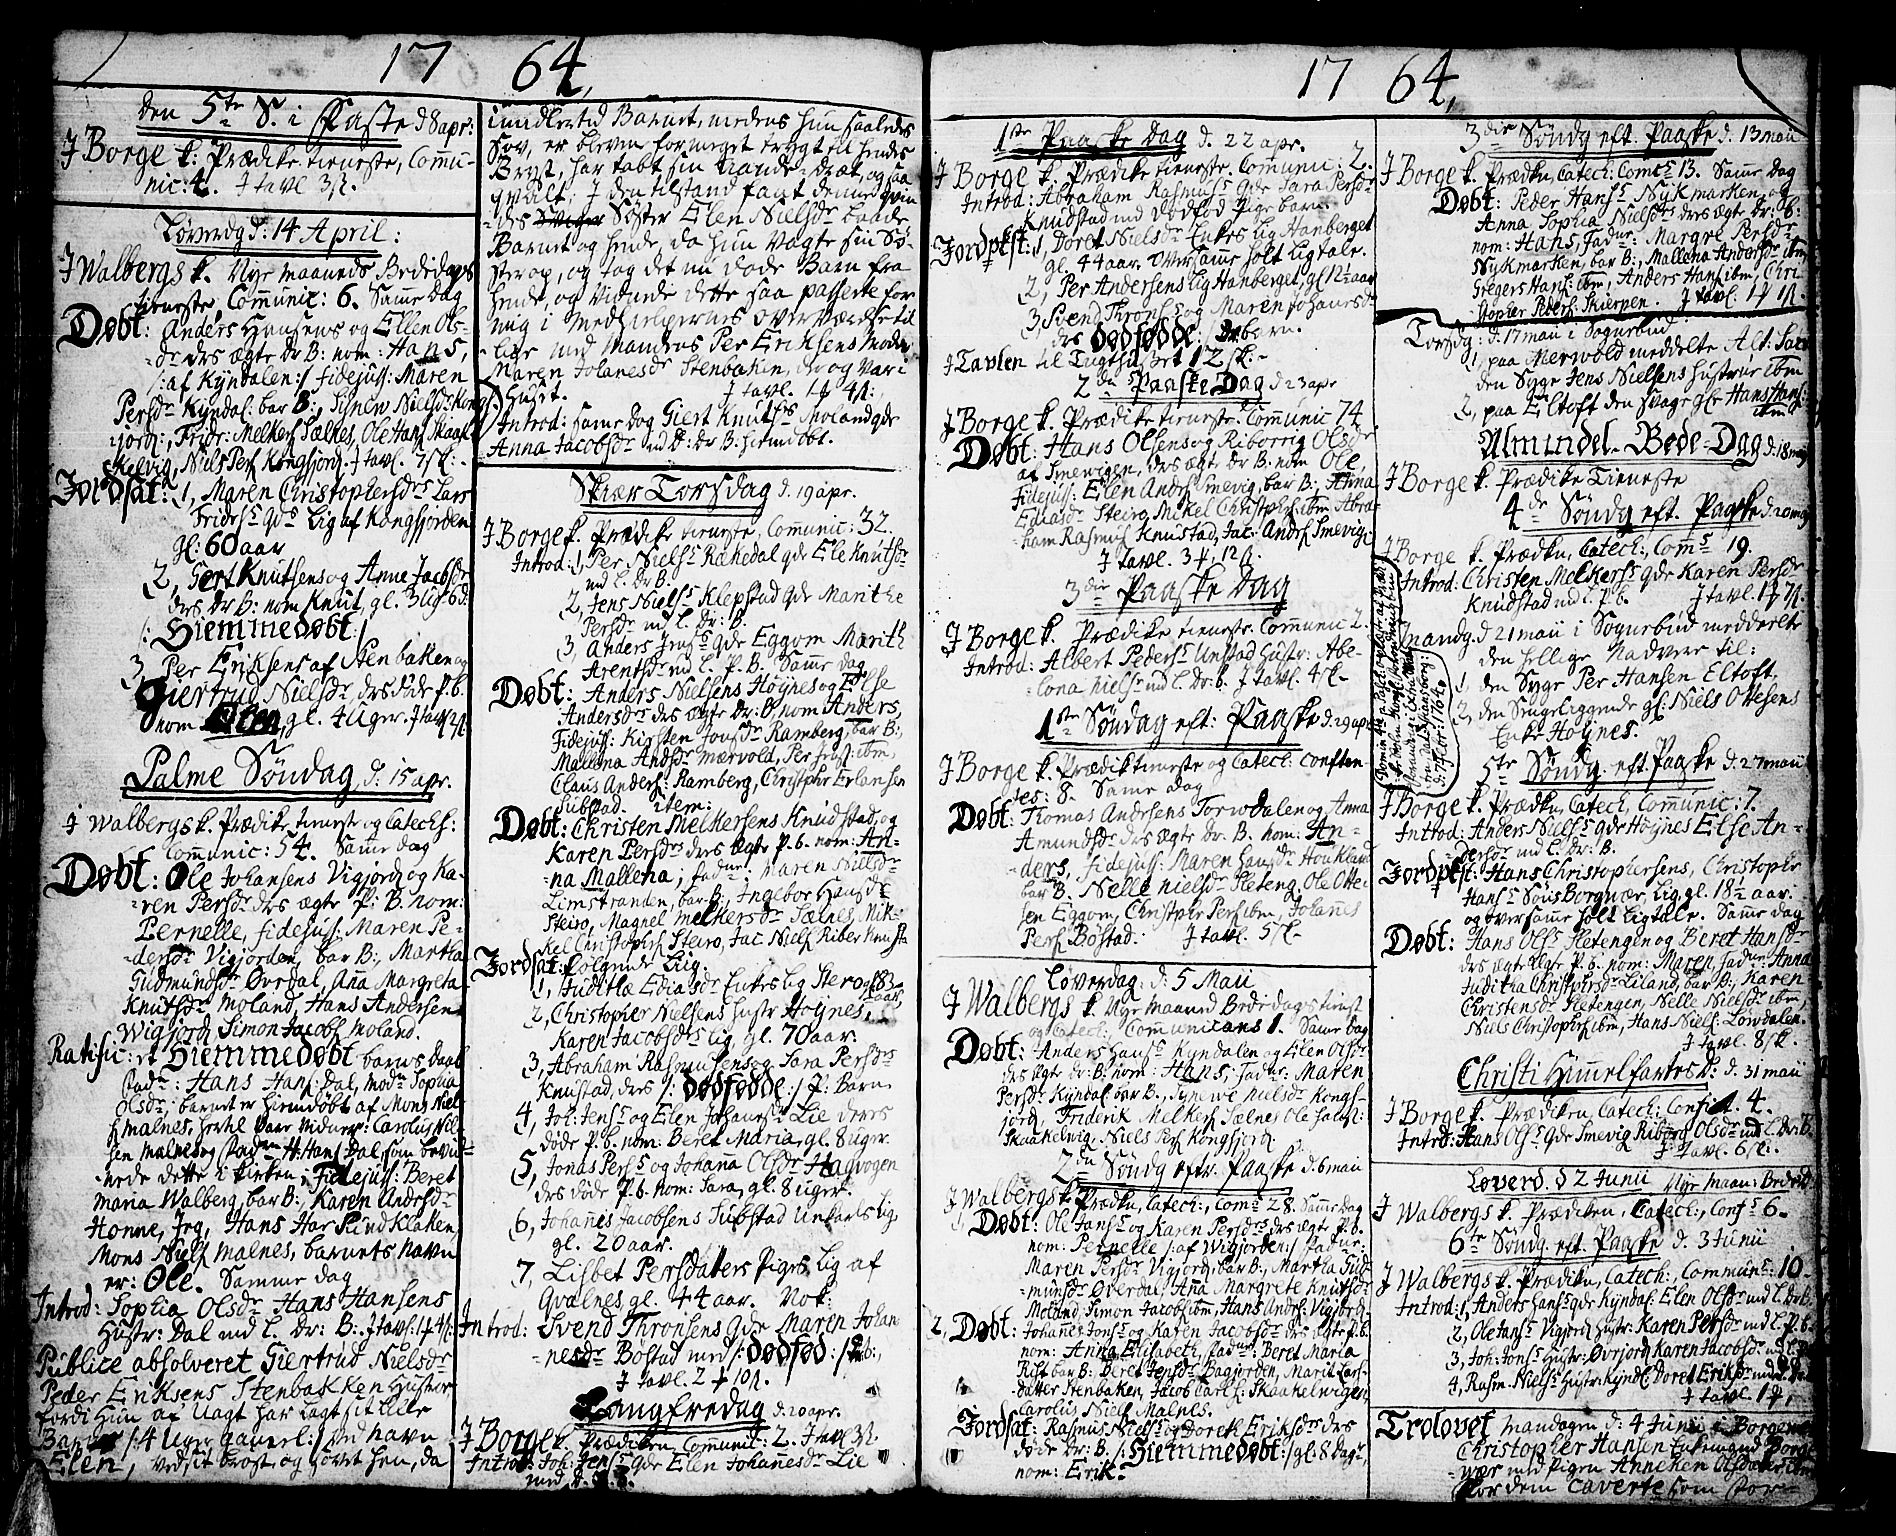 17 64,
den 5te S. i Faste d 8 apr:
J Borge k. Prædiketieneste, Comu-
nic: 4. J tavl 3 s.
Løverdg d: 14 April:
J Walbergs k. Nye maaneds Bededags
tieneste, Comunic: 6. Same dag
Døbt: Anders Hansens og Ellen Ols-
dr drs ægte dr B: nom: Hans,
/: af Kyndalen :/ fidejuss: Maren
Persdr Kyndal: bar B:, Sijnew Nielsdr Kongs-
fjord:, Fridr: Melkers Sælnes, Ole Hans Skaa-
kelvig, Niels Pers Kongfjord. J tavl. 7 s.
Jordsat: 1, Maren Christophersdr Lars
Fridrs qds Lig af Kongfjorden
gl: 60 aar
2, Gert Knutsens og Anne Jacobsdr
ders dr B: nom Knut, gl. 3 ug 6 d.
/: Hiemmedøbt :/
3, Per Eriksens af Stenbaken og
Giertrud Nielsdr drs døde P. b.
nom Elen, gl. 4 Uger. J tavl 2 s.
Palme Søndag, d. 15 apr.
J Walbergs k. Prædike tieneste og Catechs:
Comunic: 54. Same dag
Døbt: Ole Johansens Vigjord og Ka-
ren Persdr drs ægte P: B. nom:
Pernelle, fidejuss: Maren Pe-
dersdr Vigjorden, bar B:, Martha
Gudmundsdr Øverdal, Ana Margreta
Knutsdr Moland, Hans Andersen
Wigjord, Simon Jacobs Moland.
Ratific: et Hiemmedøbt barns Daab
fadr: Hans Hans: Dal, modr Sophia
Olsdr, barnet er hiemdøbt af Mons Niel-
s Malnes, hvortil vare vidner: Carolus Niel-
sen Malnes og H: Hans Dal, som bevid-
nede dette i kirken; Fidejuss: Beret
Maria Walberg, bar B:, Karen Andrsdr
Honne, Jeg, Hans Hars Rindklaken,
Mons Niels Malnes, barnets navn
er: Ole. Samme dag
Introd: Sophia Olsdr Hans Hansens
Hustr: Dal md l. Dr: B:. J tavl. 1 4 s:
Publice absolveret Giertrud Nielsdr
Peder Eriksens Stenbakken Hustr
fordi hun af Uagt har lagt sit lille
Barn /: 4 Uger gamel :/ ved navn
Elen, ved sit brøst, og sovet hen, da
imidlertid Barnet, medens hun saaledes
sov, er bleven for meget trygt til hendes
Bryst, har tabt sin Aande-dræt, og saa
qvalt; J den tilstand fant denne qvin
des Søster Elen Nielsdr baade
Barnet og hende, da hun vagte sin Sø-
ster op, og tog det nu døde Barn fra
hende, og vidnede dette saa passerte for
mig i Medhielpernes overværelse til
lige med Mandens Per Eriksens Moder
Maren Johanesdr Stenbaken, der og var i
Huset. J tavl. 1 4 s:
Introd: same dag Giert Knuts Moland gde
Anna Jacobsdr md l: Dr B: hiemdøbt.
Skiær Torsdag d. 19 apr.
J Borge k. Prædike tieneste, Comunic: 32.
Introd: 1, Per Niels Rakedal gde Ele Knutsdr
md l. dr B.
2, Jens Niels Klepstad gde Marithe
Persdr md l. dr: B.
3, Anders Jens gde Eggom Marith
Arentsdr md l. P. B. Same dag
Døbt: Anders Nielsens Høynes og Else
Andersdr des ægte Dr: B nom Anders,
Fidejuss: Kirsten Jonsdr Ramberg, bar B:
Mallena Andsdr Mærvold, Per ibm,
Claus Anders: Ramberg, Christpher Erlansen
Substad. item:
Døbt: Christen Melkersens Knudstad, og
Karen Persdrs ders ægte P. b. nom: An-
na Mallena; fadr: Maren Nielsdr
Limstranden, bar B:, Ingebor Hansdr
Steiro, Magnel Melkersdr Sælnes, Mik-
kel Christophers Steiro, Jac Niels Riber Knusta
Jordsat: følgende Liig.
1, Juditha Ediasdr Enkes lig Stero gl 83
aar
2, Christopher Nielsens Hustr Høynes,
Karen Jacobsdrs lig, gl. 70 aar.
3, Abraham Rasmusens og Sara Persdrs
Knustad, ders /: dødfødde :/ P: Barn
4, Joh: Jens og Elen Johanesdr Lie deres
døde P. b. nom: Beret Maria, gl. 8 uger
5, Jonas Pers og Johana Olsdr Hagvogen
drs døde P. b. nom: Sara, gl. 8 uger.
6, Johanes Jacobsens Substad Unkarls lig
gl. 20 aar.
7, Lisbet Persdatters Piges lig af
Qvalnes gl. 44 aar. Nok:
Introd: Svend Thronsens gde Maren Johan
nesdr Bostad med /: dødfød :/ dr b:,
J tavl. 2 10 s.
Langfredag d: 20 apr.
J Borge k. Prædiken, Comunic: 2. J tavl 3
Introd: Joh: Jens gde Elen Johanesdr Lie
med d. P. B.
17 64,
1ste Paaske Dag d. 22 apr.
J Borge k. Prædike tieneste. Comunic: 2.
Introd: Abraham Rasmus gde Sara Persdr
Knudstad md dødfød Pige barn.
Jordpkst: 1, Doret Nielsdr Enkes lig Hanberget
gl. 44 aar. over same holt ligtale.
2, Per Andersens lig Hanberget, gl 12 aar
3, Svend Throns og Maren Johansdr
ds dødfødde /: Dr barn.
J Tavlen til Tugthuset 12 s.
2den Paaske Dag d 23 apr
J Borge k. Prædike tieneste. Comunic 74
Døbt: Hans Olsens og Riborrig Olsdr
af Smewigen, drs ægt. dr B: nom Ole,
Fidejuss: Elen Andrs Smevig, bar B:, Anna
Ediasdr Steiro, Mikel Christphrs ibm Abra-
ham Rasmus Knustad, Jac: Andrs Smevigi
J tavl. 3, 12 s.
3die Paaske Dag
J Borge k. Prædike tieneste. Comunic 2.
Introd: Albert Peders Unstad Hustr: Abe-
lona Nielsdr md l. dr: b. J tavl. 4 s.
1ste Søndag eft: Paaske d. 29 apr
J Borge k. Prædiktieneste og Catech: Confiten
tes: 8. Same dag
Døbt: Thomas Andersens Torwdalen og Anna
Amundsdr ds ægte dr. B. nom: An-
ders, fidejuss: Maren Hansdr Houkland
bar B. Nelle Nielsdr Sleteng, Ole Otte-
sen Eggom, Christphr Pers ibm, Johannes
Pers Bøstad. J tavl. 5 s.
Løverdag: d. 5 Maii
J Walbergs k. Nye maaned Bededags tienst
og Catech: Comunicans 1. Same dag
Døbt: Anders Hans Kyndalen og Elen Olsdr
ds ægte dr: B: nom: Hans, fadr: Maren
Persdr Kyndal bar B:, Synewe Nielsdr Kongs-
jord, Friderik Melkers Sælnes Ole Hans:
Skaakelvig, Niels Pers Kongfjord.
2den Søndg eftr. Paaske d. 6 maii
J Walbergs k: Prædikn, Catech:, Com: 28. Same dag
1, Døbt: Ole Jans og Karen Persdr drs ægt P. b.
nom: Pernelle /: af Wigjorden :/ fadr:
Maren Persdr Vigjord, bar B:, Martha Gud
munsdr Øverdal, Ana Margrete Knutsdr
Moland, Simon Jacobs ibm, Hans Andrs. Vigjord
2, Døbt: Johanes Jons og Karen Jacobsdr drs ægte P. b.
nom: Anna Elisabeth, fadr: Beret Maria
Rist bar B: Beret Jensdr Bagjorden, Marit Lars-
datter Stenbaken, Jacob Carls: Skaakelwigen,
Carolus Niels Malnes.
Jordsat: Rasmus Niels og Doreth Eriksdrs drs
døde dr: B. /: Hiemmedøbt :/ gl: 8 dagr
nom: Erik.
3die Søndg eft. Paaske d. 13 maii
J Borge k. Prædkn, Catech: Coms 13. Same dag
Døbt: Peder Hans Nykmarken, og
Anna Sophia Nielsdrs ders ægte dr: B:
nom: Hans, fadr: Margre Persdr
Nykmarken, bar B:, Mallena Andersdr ibm
Gregers Hans: ibm, Anders Hans ibm Chri-
stopher Peders: Skierpen. J tavl. 1 1 s.
Torsdg: d. 17 maii i Sognebud:
1, paa Merwold meddelte Alt: Sacr
den Syge Jens Nielsens hustrue ibm
2, paa Eltoft den svage gle Hans Hans:
ibm
Almindel. Bede-Dag d. 18 maij
J Borge k. Prædike Tieneste
4de Søndg eft. Paaske d. 20 maij
J Borge k. Prædkn, Catech:, Coms 19.
Introd: Christen Melkers gde Karen Persdr
Knudstad md l. P. b. J tavl. 1 7 s.
Mandg. d. 21 maii i Sognebud meddeelte
den hellige Nadvere til:
1, den Syge Per Hansen Eltoft,
2, den Sengeliggende gl: Niels Ottesens
Enke Høynes.
5te Søndg. eft. Paaske d. 27 maii
J Borge k. Prædkn, Catech, Comunic: 7.
Introd: Anders Niels gde Høynes Else An-
dersdr md l. Dr: B.
Jordpkst: Hans Christophersens, Christophr
Hans: Søns Borgvær, Lig, gl. 18½ aar.
og over same holt ligtale. Same dag
Døbt: Hans Ols Sletengen og Beret Hansdr
drs ægte P. b. nom: Maren, fadr Anna
Juditha Christphrsdr Liland, bar B:, Karen
Christensdr Sletengen, Nelle Nielsdr ibm,
Niels Christophers ibm, Hans Niels: Lowdalen.
J tavl. 8 s.
Christi Himmelfartsd: d. 31 maii
J Borge k. Prædiken, Catech: Confit. 4.
Introd: Hans Ols gde Smevig Riborg Olsdr md l. dr: B.
J tavl. 6 s.
Løverd. d 2 Junii Nye Maan: Beded
J Walbergs k. Prædiken, Catech:, Confs 6.
6te Søndg. eft. Paaske d. 3 Junii
J Walbergs k. Prædikn, Catech:, Communs: 10.
Introd: 1, Anders Hans gde Kyndal: Elen Olsdr md l. dr b.
2, Ole Jans Vigjord Hustr: Karen Persdr md l. P. b.
3, Joh: Jons Hustr: Øvrjord Karen Jacobsdr md l. P. b.
4, Rasm. Niels Hustr: Kyndl. Doret Eriksdr
J tavl. 1
Trolovet Mandagen d: 4 Junii i Borge
Christopher Hansen Enkemand Borge
wær med Pigen Anneken Olsdatter ibm
For dem caverte som For-